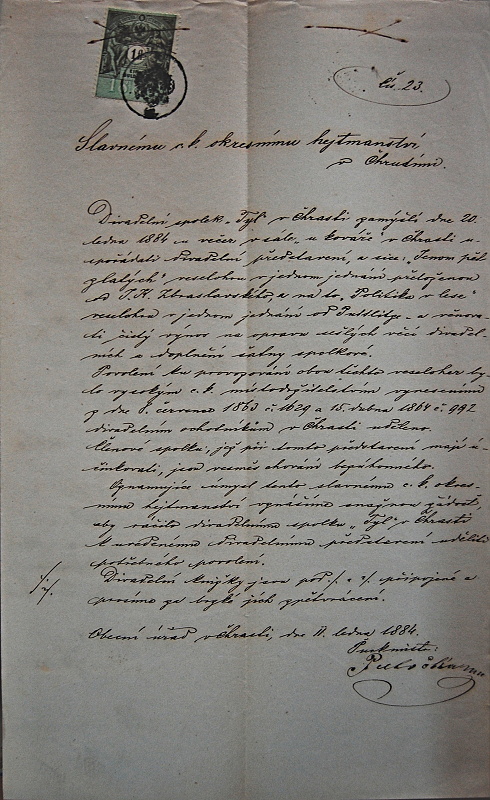 čís. 23.
Slavnému c. k. okresnímu hejtmanství
v Chrudimi.
Divadelní spolek „Tyl" v Chrasti pamýšlí dne 20.
ledna 1884 u večer v sále „u kováře v Chrasti u-
spořádati divadelní představení, a sice: „Jenom půl
zlatých" veselohru v jednom jednání přeloženou
od J. K. Zbraslavského, a na to „Politika v lese"
veselohra v jednom jednání od a věnova-
ti čistý výnos na opravu sešlých věcí divadel-
ních a doplnění šatny spolkové.
Povolení ku provozování obou těchto veseloher by-
lo vysokým c. k. místodržitelstvím vynesením
z dne 8. července 1863 č. 1629 a 15. dubna 1864 č. 992
divadelním ochotníkům v Chrasti uděleno.
Členové spolku, jež při tomto představení mají ú-
činkovati, jsou vesměs chování bezúhonného.
Oznamujíce úmysl tento slavnému c. k. okres-
nímu hejtmanství vznášíme snažnou žádost,
aby ráčilo divadelnímu spolku „Tyl" v Chrasti
k uvedenému divadelnímu představení uděliti
potřebného povolení.
Divadelní knížky jsou pod ·/. a ·/. připojené a
prosíme za brzké jich zpětvrácení.
Obecní úřad v Chrasti, dne 11. ledna 1884.
Purkmistr: